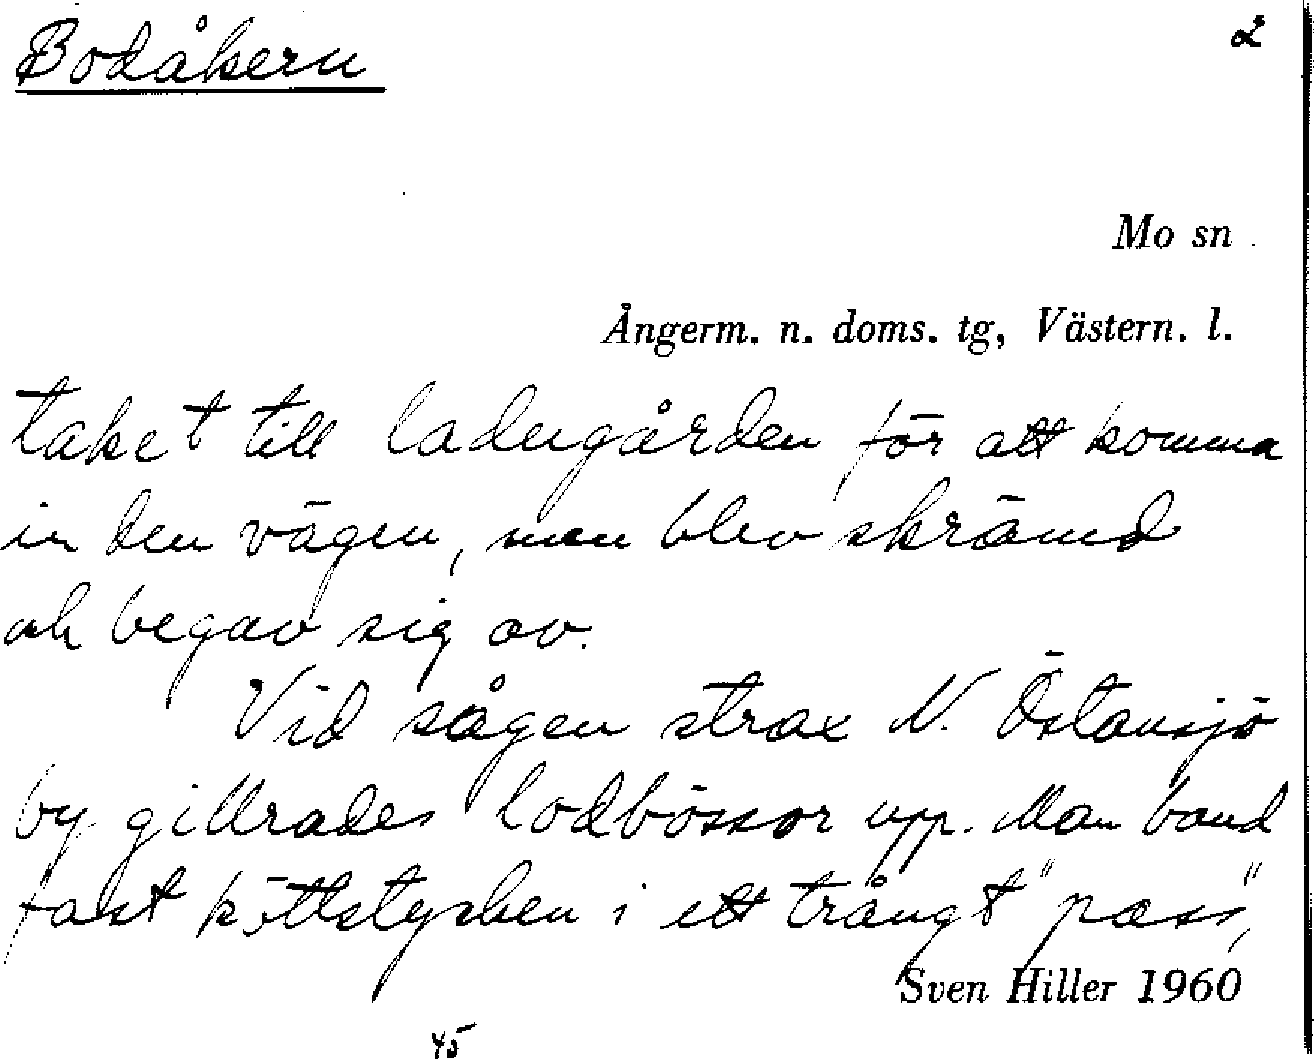 Bodåkern
2
Mo sn
Ångerm. n. doms. tg, Västern. l.
taket till ladugården för att komma
in den vägen, men blev skrämd
och begav sig av.
Vid sågen strax N. Östansjö
by gillrades lodbössor upp. Man band
fast köttstycken i ett trångt "pass",
Sven Hiller 1960
45